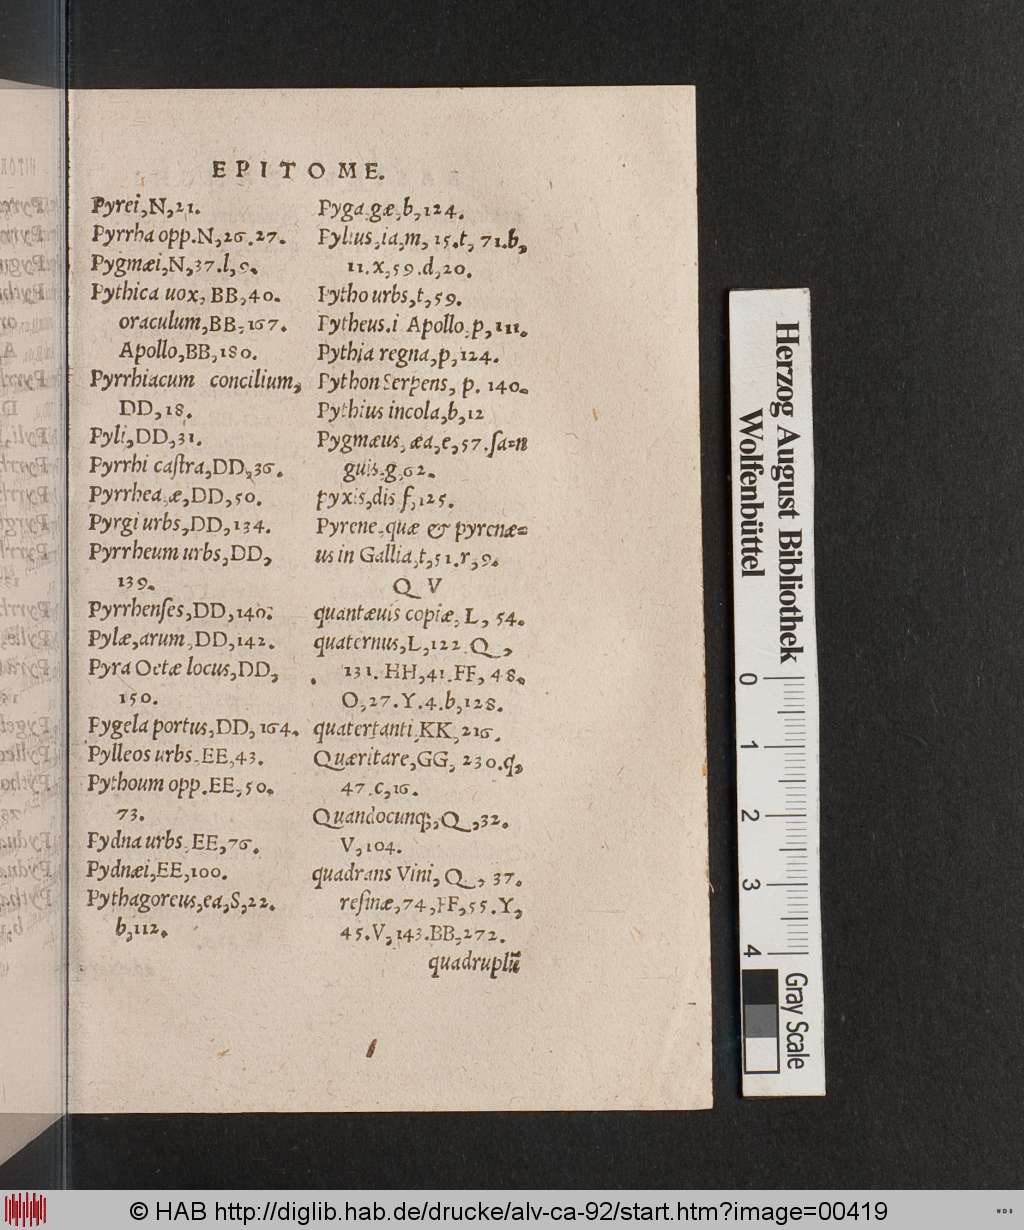 EPITOME.
Pyrei,N,21.
Pyrrha opp.N,26.27.
Pygmæi,N,37.l,9.
Pythica uox, BB,40.
oraculum,BB,167.
Apollo,BB,180.
Pyrrhiacum concilium,
DD,18.
Pyli,DD,31.
Pyrrhi caſtra,DD,36.
Pyrrhea,æ,DD,50.
Pyrgi urbs,DD,134.
Pyrrheum urbs,DD,
139.
Pyrrhenſes,DD,140.
Pylæ,arum,DD,142.
Pyra Oetæ locus,DD,
150.
Pygela portus,DD,164.
Pylleos urbs,EE,43.
Pythoum opp.EE,50.
73.
Pydna urbs,EE,76.
Pydnæi,EE,100.
Pythagoreus,ea,S,22.
b,112.
Pyga,gæ,b,124.
Pylius,ia,m, 15.t, 71.b,
11.x,59.d,20.
Pytho urbs,t,59.
Pytheus.i Apollo,p,111.
Pythia regna,p,124.
Python Serpens, p. 140.
Pythius incola,b,12
Pygmæus, æa,e,57.ſa=n
guis,g,62.
pyxis,dis f,125.
Pyrene,quæ & pyrenæ=
us in Gallia,t,51.r,9.
Q V
quantæuis copiæ, L, 54.
quaternus,L,122.Q,
131. HH,41.FF, 48.
O,27.Y.4.b,128.
quatertanti,KK,216.
Quæritare,GG, 230.q,
47.c,16.
Quandocunq;,Q,32.
V,104.
quadrans Vini, Q, 37.
reſinæ,74,FF,55.Y,
45.V,143.BB,272.
quadruplũ
Herzog August Bibliothek
Wolfenbüttel
0 1 2 3 4
Gray Scale
© HAB http://diglib.hab.de/drucke/alv-ca-92/start.htm?image=00419